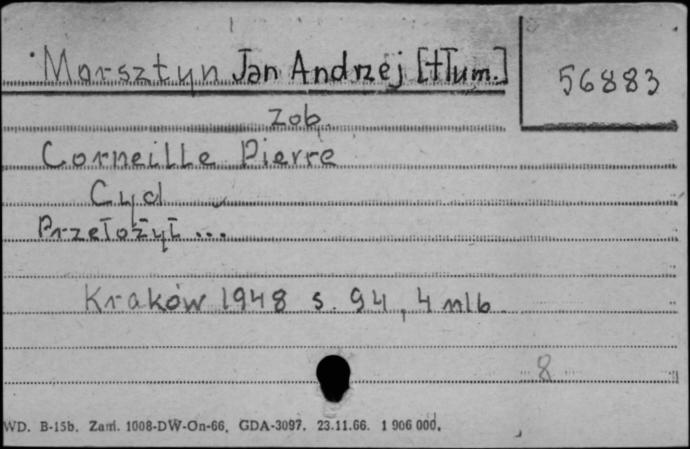 Morsztyn Jan Andrzej [tłum.]
56883
zob.
Corneille Pierre
Cyd
Przełożył ...
Kraków 1948 s. 94, 4 nlb.
8
WD. B-15b. Zam. 1008-DW-On-66. GDA-3097. 23.11.66. 1 906 000.